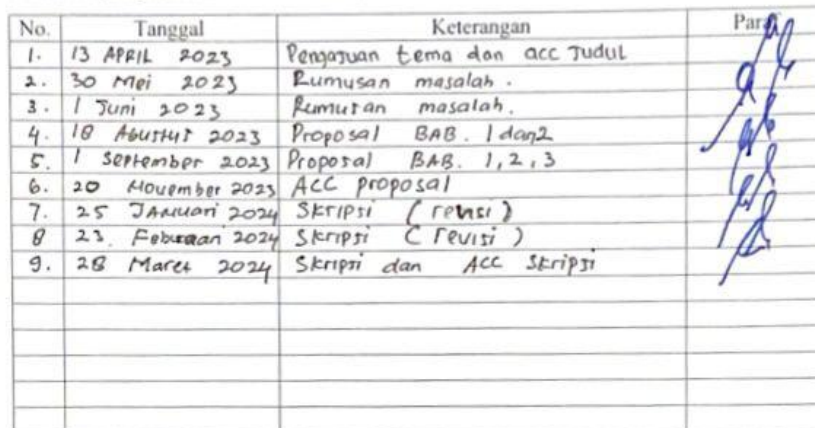 No. Tanggal Keterangan Paraf
1. 13 APRIL 2023 Pengajuan tema dan acc Judul
2. 30 Mei 2023 Rumusan masalah.
3. 1 Juni 2023 Rumusan masalah.
4. 18 Agustus 2023 Proposal BAB. 1 dan 2
5. 1 September 2023 Proposal BAB. 1, 2, 3
6. 20 November 2023 ACC proposal
7. 25 JANuari 2024 Skripsi (revisi)
8 23. 2024 Skripsi (revisi)
9. 28 Maret 2024 Skripsi dan ACC Skripsi